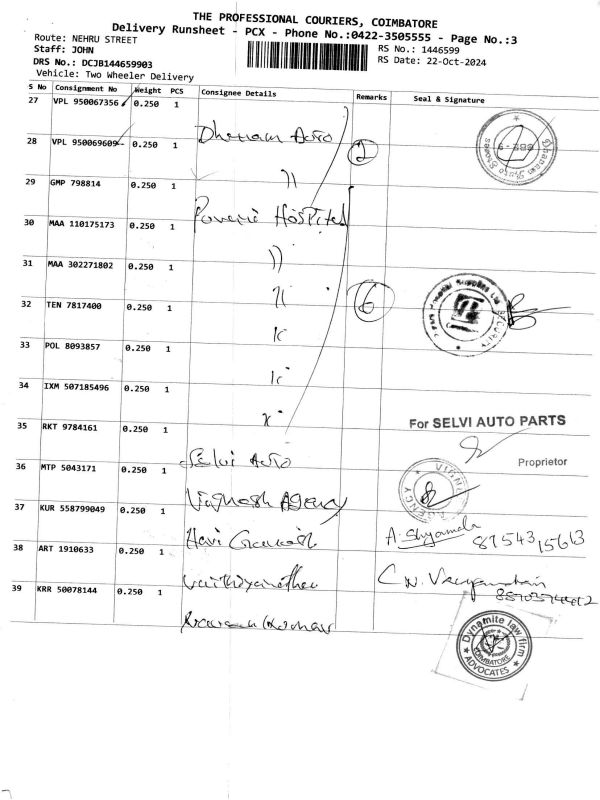 THE PROFESSIONAL COURIERS, COIMBATORE
Delivery Runsheet - PCX - Phone No.:0422-3505555 - Page No.:3
Route: NEHRU STREET
Staff: JOHN
RS No.: 1446599
DRS No.: DCJB144659903
RS Date: 22-Oct-2024
Vehicle: Two Wheeler Delivery
S No Consignment No Weight PCS Consignee Details Remarks Seal & Signature
27 VPL 950067356 0.250 1
28 VPL 950069609 0.250 1 Auto 2
29 GMP 798814 0.250 1 "
30 MAA 110175173 0.250 1 Hospital
31 MAA 302271802 0.250 1 "
32 TEN 7817400 0.250 1 " 6
33 POL 8093857 0.250 1 "
34 IXM 507185496 0.250 1 "
35 RKT 9784161 0.250 1 "
For SELVI AUTO PARTS
Proprietor
36 MTP 5043171 0.250 1 Selvi Auto
37 KUR 558799049 0.250 1 Vignesh Agency
38 ART 1910633 0.250 1 A. Shyamala
39 KRR 50078144 0.250 1
Dynamite law firm
COIMBATORE
ADVOCATES